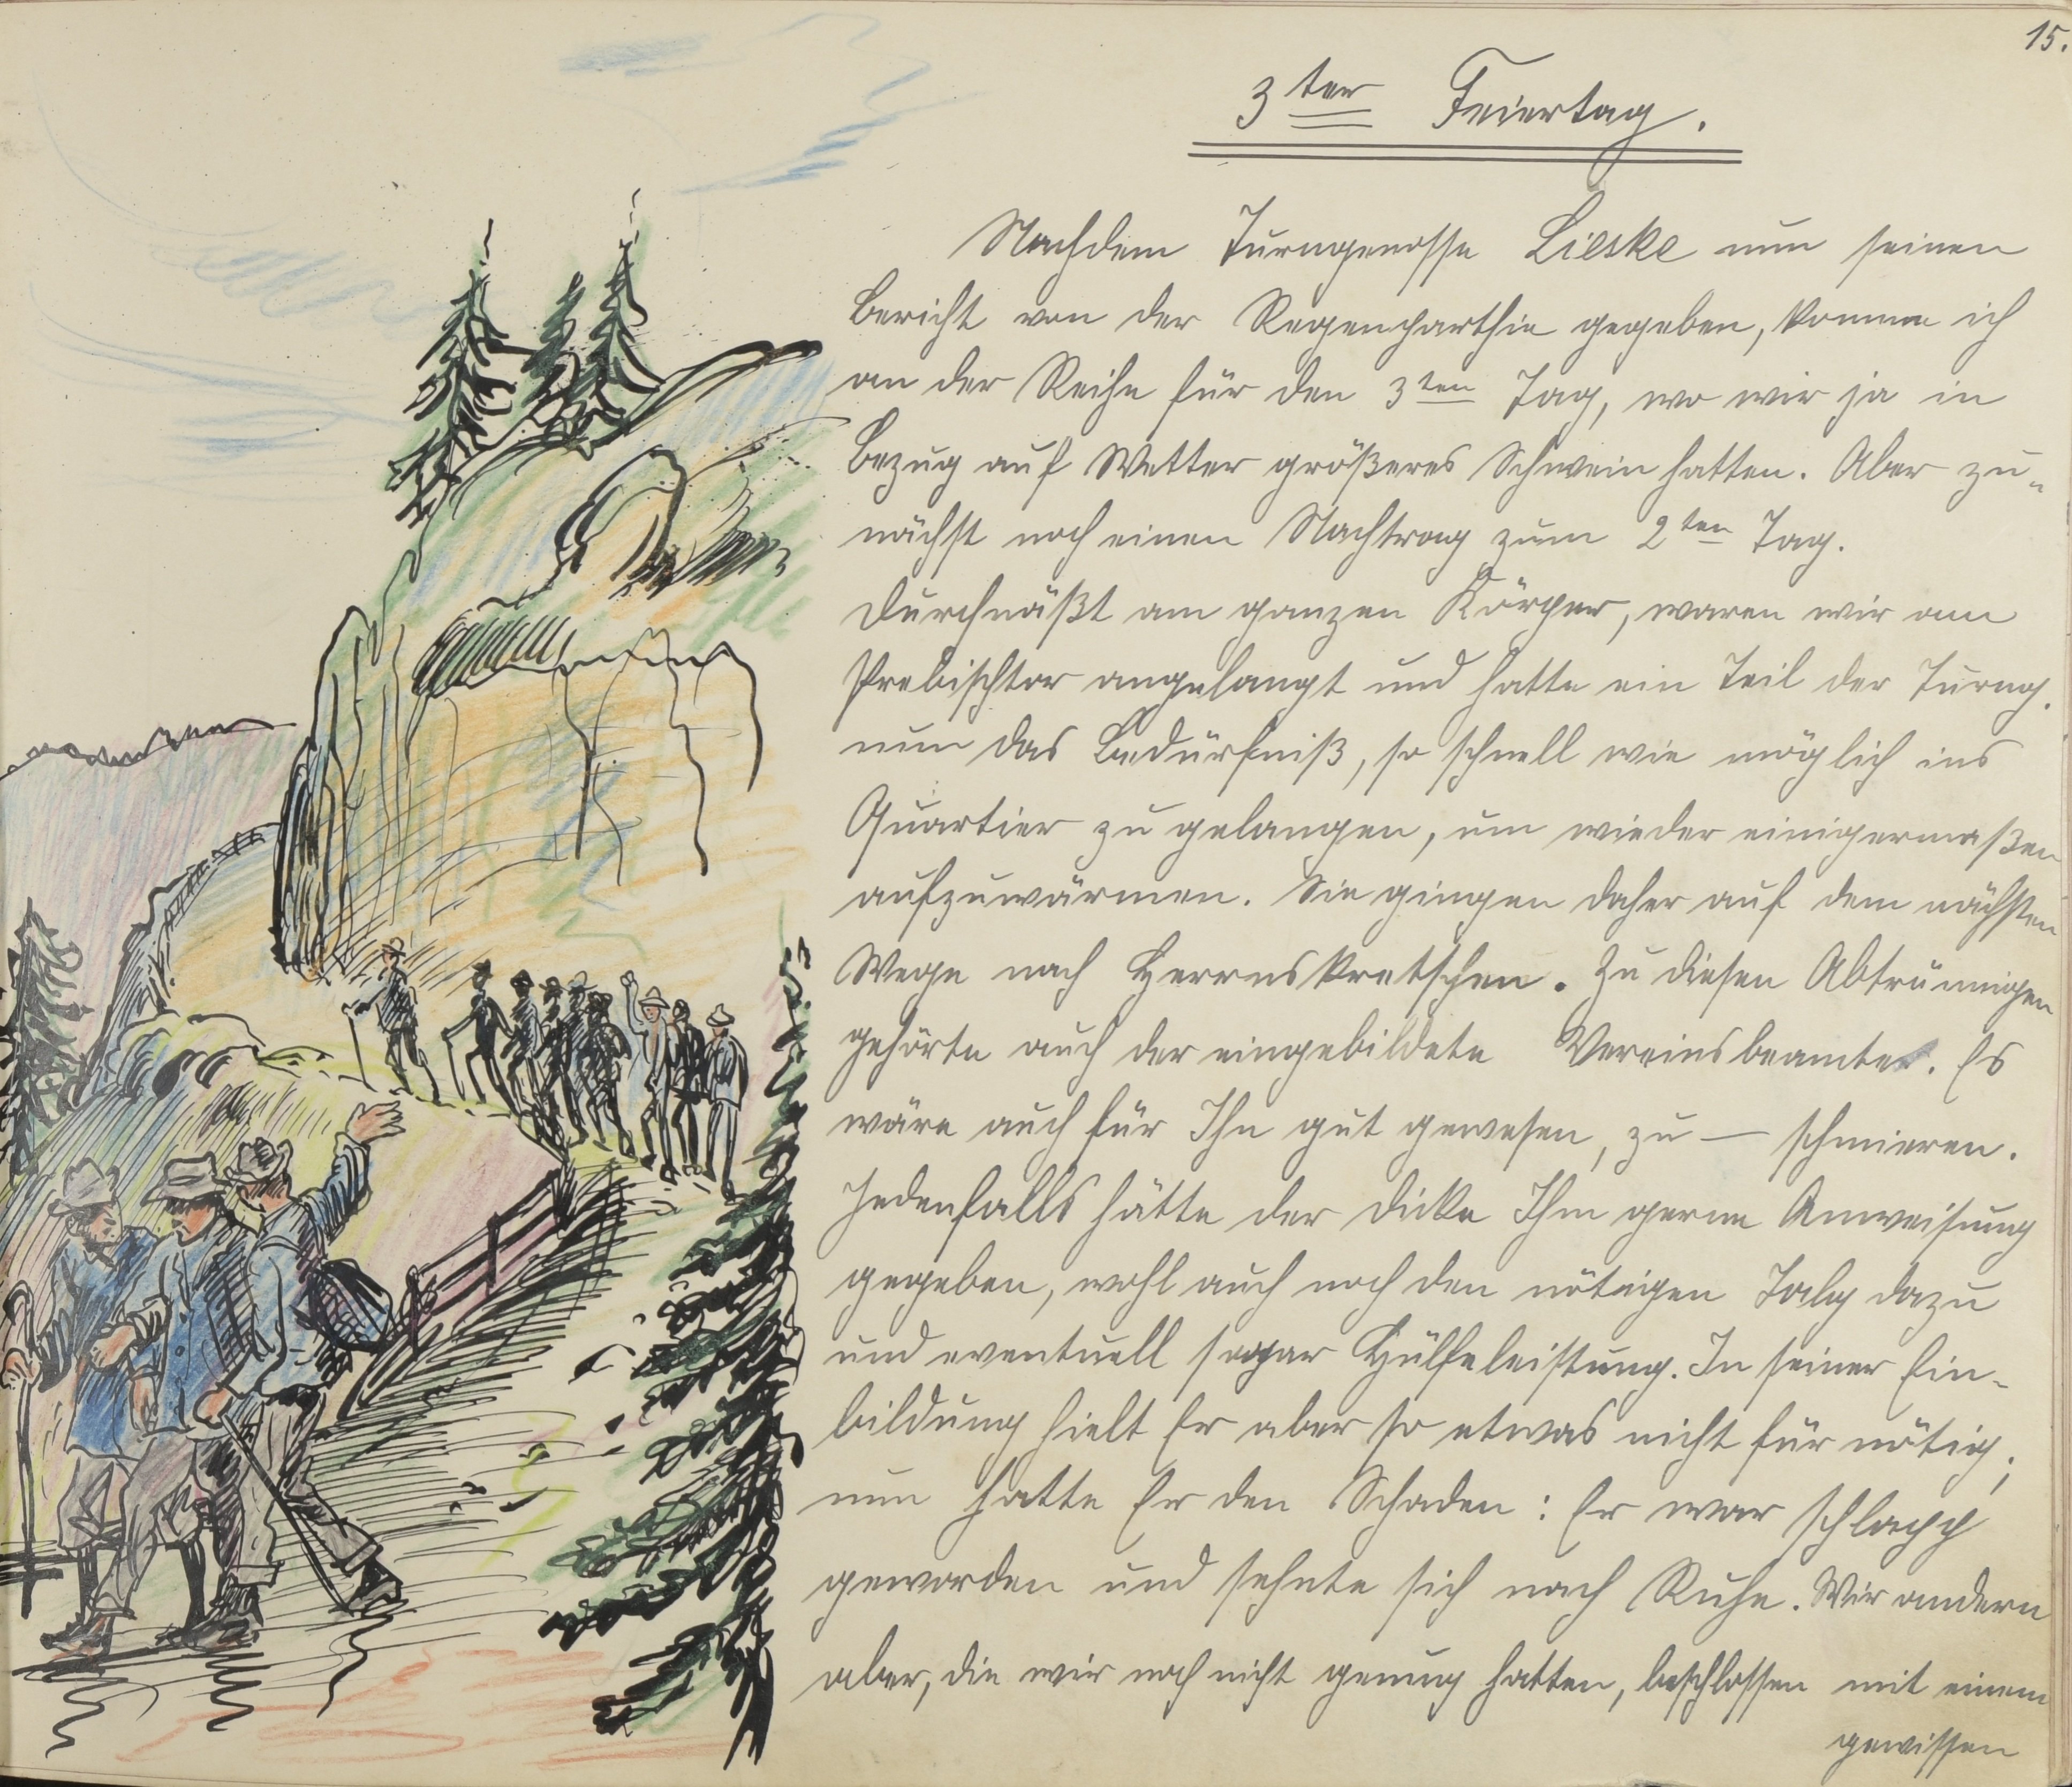 15.
3ter Feiertag.
Nachdem Turngenosse Lieske nun seinen
Bericht von der Regenparthie gegeben, komme ich
an der Reihe für den 3ten Tag, wo wir ja in
Bezug auf Wetter größeres Schwein hatten. Aber zu-
nächst noch einen Nachtrag zum 2ten Tag.
Durchnäßt am ganzen Körper, waren wir am
Prebischtor angelangt und hatte ein Teil der Turng.
nun das Bedürfniß, so schnell wie möglich ins
Quartier zu gelangen, um wieder einigermaßen
aufzuwärmen. Sie gingen daher auf dem nächsten
Wege nach Herrnskretschen. Zu diesen Abtrünnigen
gehörte auch der eingebildete Vereinsbeamte. Es
wäre auch für Ihn gut gewesen, zu — schmieren.
Jedenfalls hätte der Dicke Ihm gerne Anweisung
gegeben, wohl auch noch den nötigen Talg dazu
und eventuell sogar Hülfeleistung. In seiner Ein-
bildung hielt Er aber so etwas nicht für nötig;
nun hatte Er den Schaden: Er war schlapp
geworden und sehnte sich nach Ruhe. Wir andern
aber, die wir noch nicht genug hatten, beschlossen mit einem
gewissen